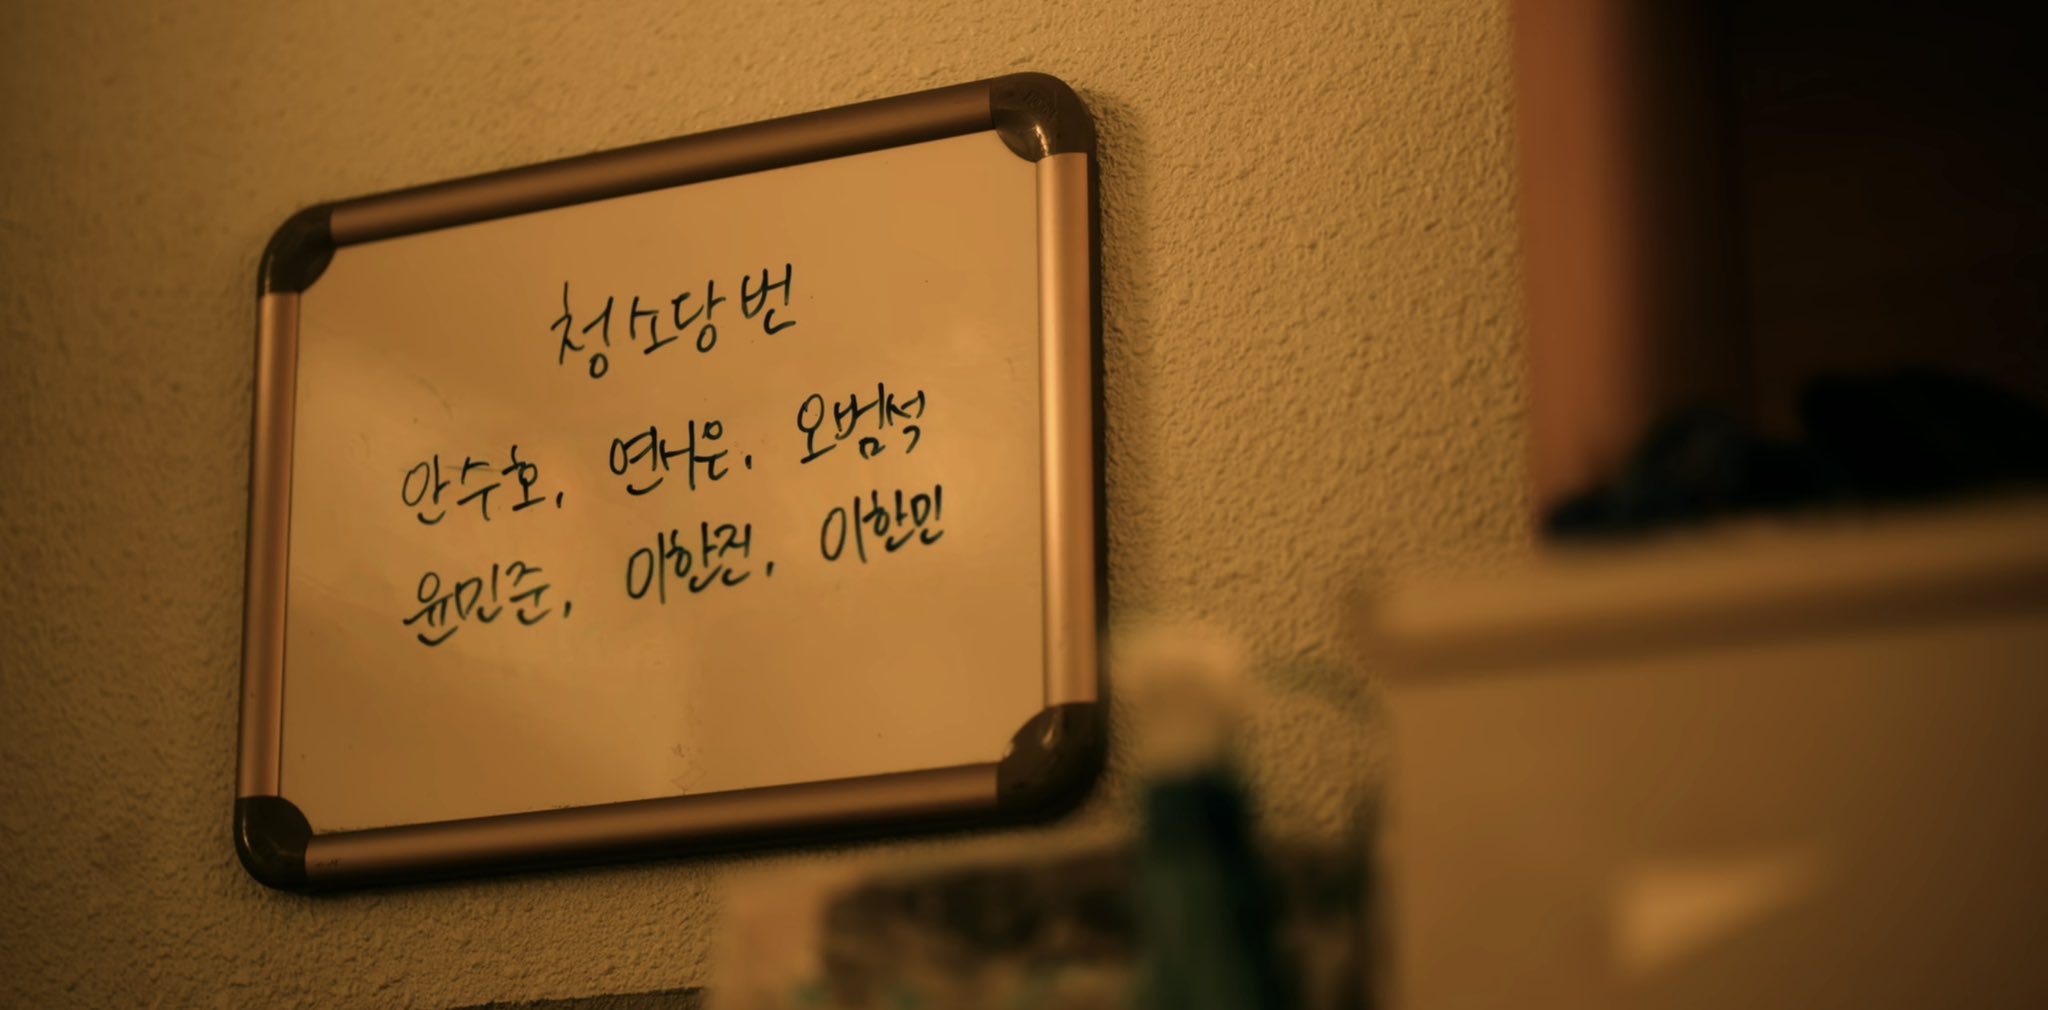 청소당번
안수호, 연서은, 오범석
윤민준, 이한진, 이한민